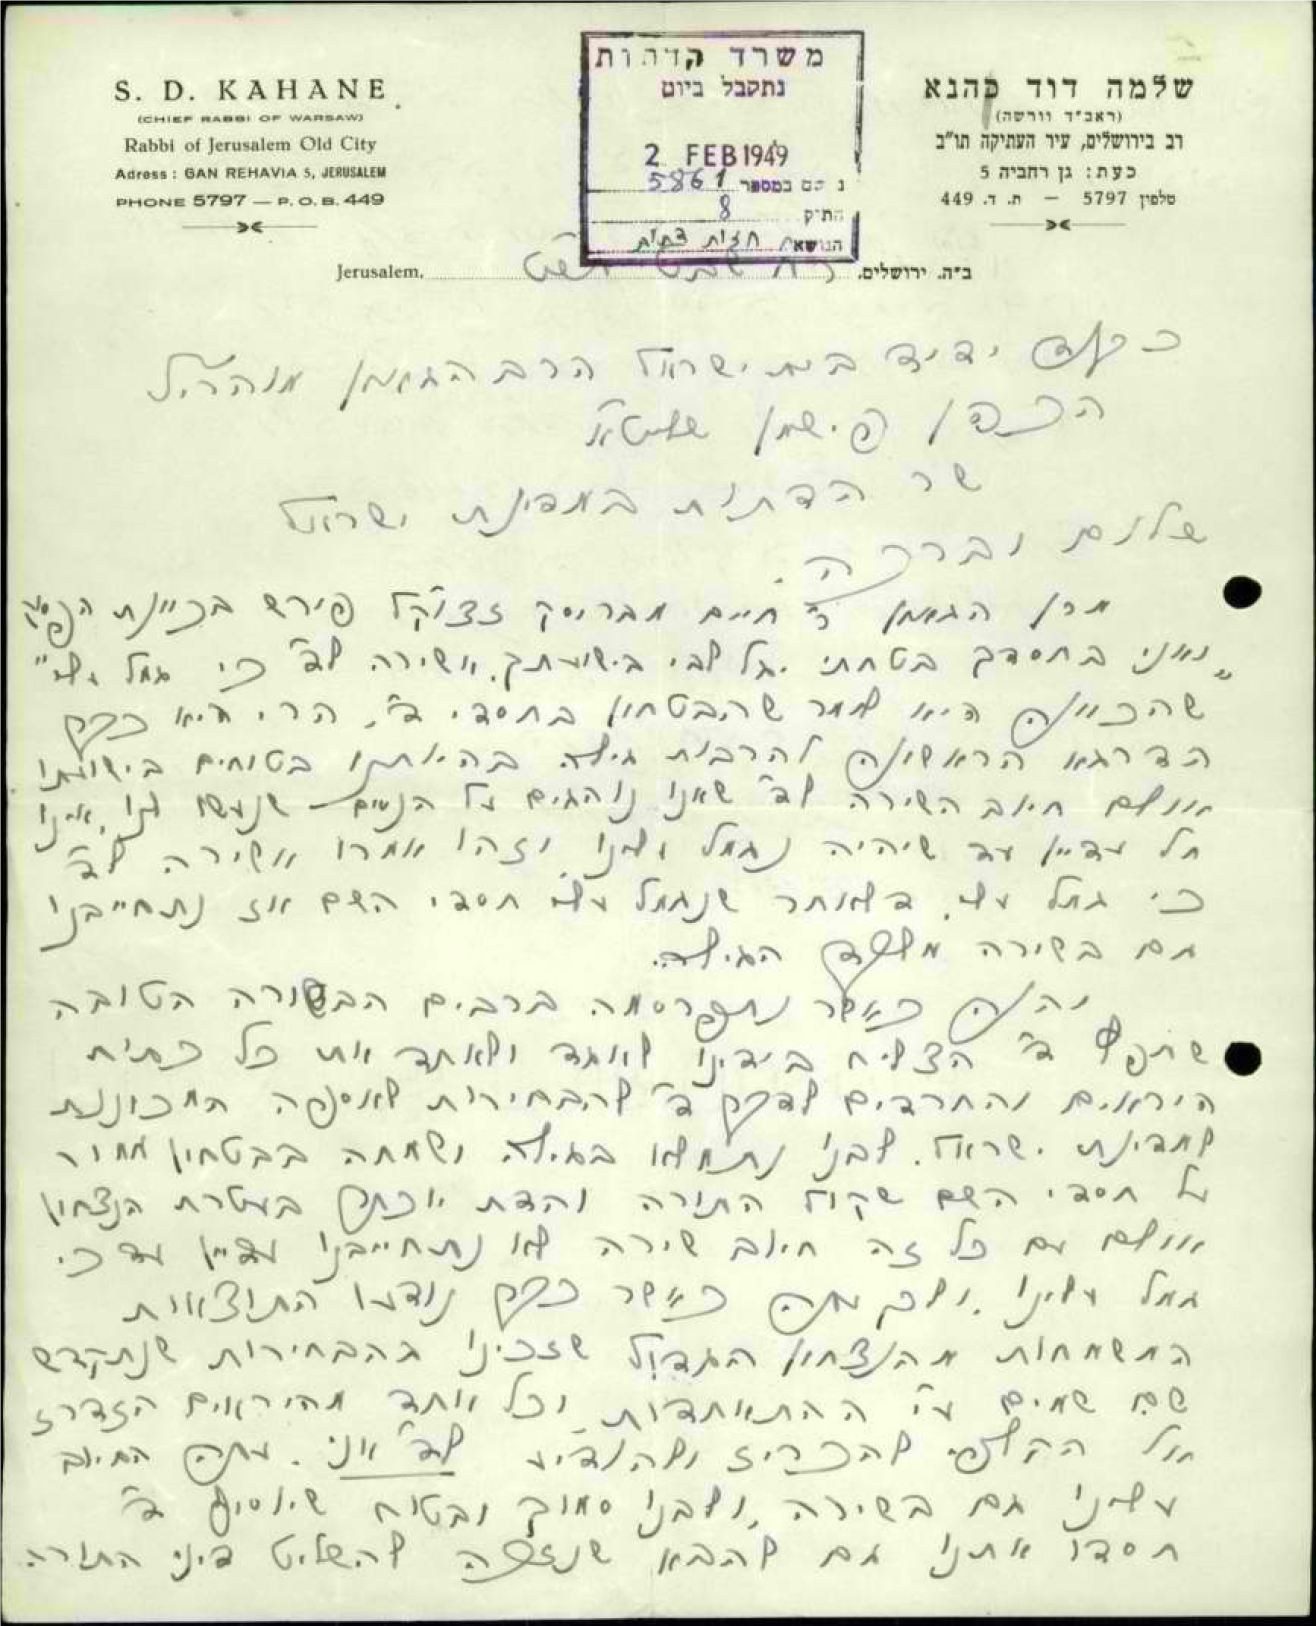 S. D. KAHANE
(CHIEF RABBI OF WARSAW)
Rabbi of Jerusalem Old City
Adress : GAN REHAVIA 5, JERUSALEM
PHONE 5797 — P. O. B. 449
משרד הדתות
נתקבל ביום
2 FEB 1949
נרשם במספר 5861
התיק 8
הנושא חזית דתית
שלמה דוד כהנא
(ראב״ד וורשה)
רב בירושלים, עיר העתיקה תו״ב
כעת: גן רחביה 5
טלפון 5797 — ת. ד. 449
Jerusalem, שבט תש״ט ב״ה. ירושלים.
כבוד ידיד בית ישראל הרב הגאון מוהרי״ל
הכהן פישמן שליט״א
שר הדתות במדינת ישראל
שלום וברכה.
מרן הגאון ר׳ חיים מבריסק זצוק״ל פירש בכוונת הפסוק
„ואני בחסדך בטחתי יגל לבי בישועתך, אשירה לד׳ כי גמל עלי״
שהכוונה היא לומר שהבטחון בחסדי ד׳, הרי היא
הדרגא הראשונה להרבות גילה בהיותנו בטוחים בישועתו
אולם חיוב השירה לד׳ שאנו נוהגים על הנסים שנעשו לנו, אינו
חל עדיין עד שיהיה נגמל עלינו, וזהו אמרו אשירה לד׳
כי גמל עלי, דלאחר שנגמל עלי חסדי השם אז נתחייבנו
גם בשירה מלבד הגילה.
והנה כאשר נתפרסמה ברבים הבשורה הטובה
ד׳ הצליח בידינו לאגד ולאחד את כל כתות
היראים והחרדים לדבר ד׳ להבחירות לאספה המכוננת
למדינת ישראל. לבנו נתמלא בגילה ושמחה בבטחון גמור
על חסדי השם שקול התורה והדת יוכתר בעטרת הנצחון
אולם עם כל זה חיוב שירה לא נתחייבנו עדיין עד כי
גמל עלינו, ולכן עתה כאשר כבר נודעו התוצאות
המשמחות מהנצחון הגדול שזכינו בהבחירות שנתקדש
שם שמים ע״י ההתאחדות, וכל אחד מהיראים הזדרז
אל הקלפי להכריז ולהודיע לד׳ אני. עתה החיוב
עלינו גם בשירה, ולבנו סמוך ובטוח שיוסיף ד׳
חסדו אתנו גם להבא שנזכה להשליט דיני התורה